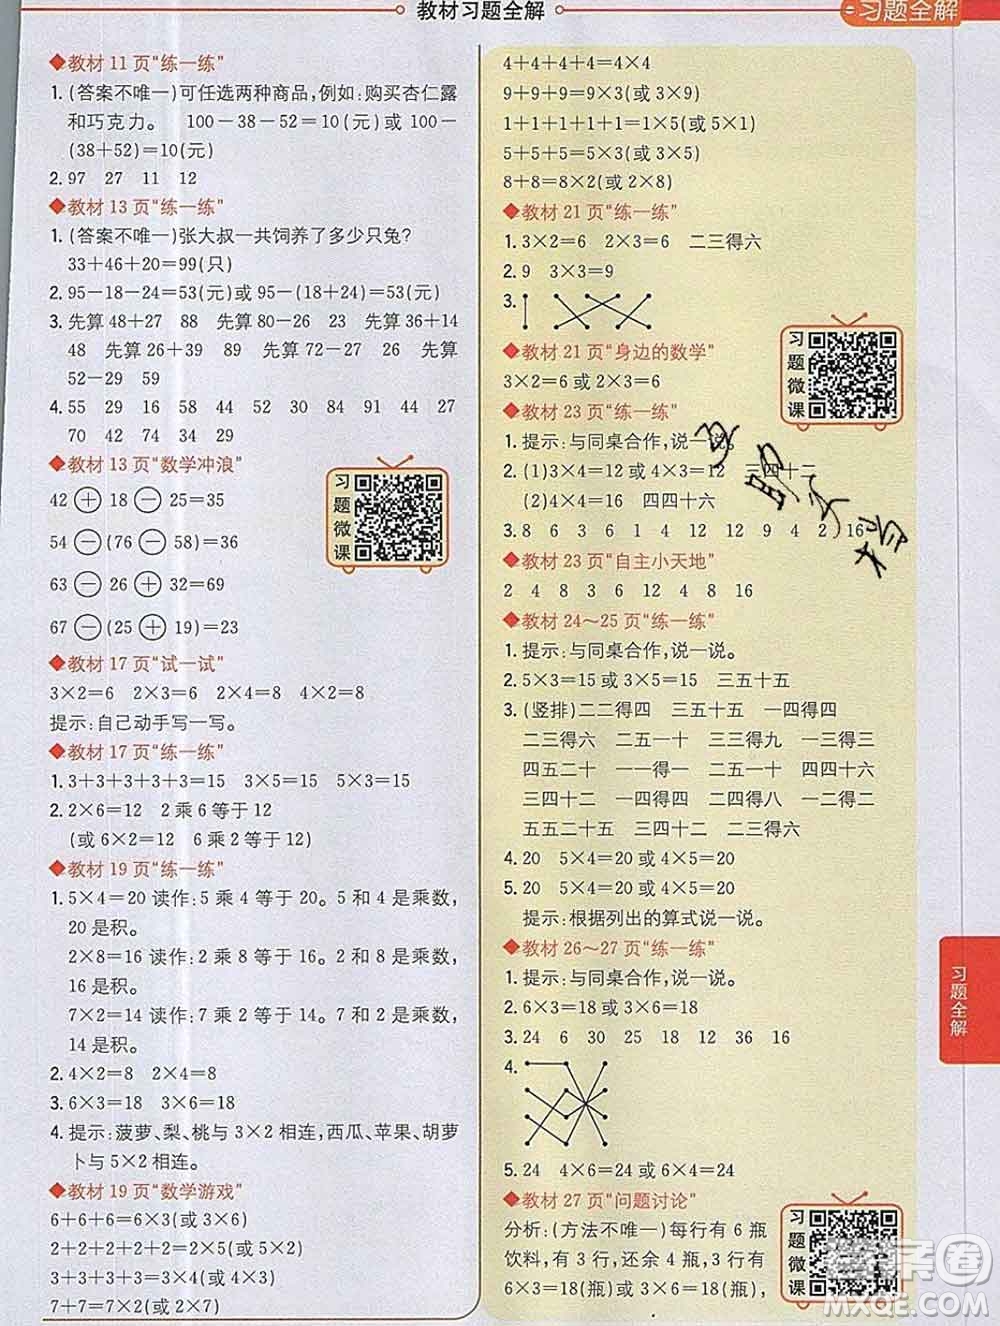 教材习题全解
习题全解
◆教材 11 页“练一练”
1. (答案不唯一)可任选两种商品,例如:购买杏仁露
和巧克力。 100-38-52=10(元)或 100-
(38+52)=10(元)
2. 97 27 11 12
◆教材 13 页“练一练”
1. (答案不唯一)张大叔一共饲养了多少只兔?
33+46+20=99(只)
2. 95-18-24=53(元)或 95-(18+24)=53(元)
3. 先算 48+27 88 先算 80-26 23 先算 36+14
48 先算 26+39 89 先算 100-34 28 先算
52-29 59
4. 55 29 16 58 24 52 30 84 91 27
70 42 74 34 29
◆教材 13 页“数学冲浪”
42 ⊕ 18 ⊖ 25=35
54 ⊖ (76 ⊖ 58)=36
63 ⊖ 26 ⊕ 32=69
67 ⊖ (25 ⊕ 19)=23
习题微课
◆教材 17 页“试一试”
3×2=6 2×3=6 2×4=8 4×2=8
提示:自己动手写一写。
◆教材 17 页“练一练”
1. 3+3+3+3+3=15 3×5=15 5×3=15
2. 2×6=12 2 乘 6 等于 12
(或 6×2=12 6 乘 2 等于 12)
◆教材 19 页“练一练”
1. 5×4=20 读作:5 乘 4 等于 20。5 和 4 是乘数,
20 是积。
2×8=16 读作:2 乘 8 等于 16。2 和 8 是乘数,
16 是积。
7×2=14 读作:7 乘 2 等于 14。7 和 2 是乘数,
14 是积。
2. 4×2=8 2×4=8
3. 6×3=18 3×6=18
4. 提示:菠萝、梨、桃与 3×2 相连,西瓜、苹果、胡萝
卜与 5×2 相连。
◆教材 19 页“数学游戏”
6+6+6=6×3(或 3×6)
2+2+2+2+2=2×5(或 5×2)
3+3+3+3=3×4(或 4×3)
7+7=7×2(或 2×7)
4+4+4+4=4×4
9+9+9=9×3(或 3×9)
1+1+1+1+1=1×5(或 5×1)
5+5+5=5×3(或 3×5)
8+8=8×2(或 2×8)
◆教材 21 页“练一练”
1. 3×2=6 2×3=6 二三得六
2. 9 3×3=9
3.
习题微课
◆教材 21 页“身边的数学”
3×2=6 或 2×3=6
◆教材 23 页“练一练”
1. 提示:与同桌合作,说一说。
2. (1)3×4=12 或 4×3=12 三四十二
(2)4×4=16 四四十六
3. 8 6 3 6 1 4 12 12 9 4 2 16
◆教材 23 页“自主小天地”
2 4 8 12 3 4 8 16
◆教材 24~25 页“练一练”
1. 提示:与同桌合作,说一说。
2. 5×3=15 或 3×5=15 三五十五
3. (竖排)二二得四 三五十五 一四得四
二三得六 二五一十 三三得九 一三得三
四五二十 一一得一 二五一十 一五得五
三四十二 一四得四 二四得八 一二得二
五五二十五 三四十二 二三得六
4. 20 5×4=20 或 4×5=20
5. 20 5×4=20 或 4×5=20
提示:根据列出的算式说一说。
◆教材 26~27 页“练一练”
1. 提示:与同桌合作,说一说。
2. 6×3=18 或 3×6=18
3. 24 6 30 25 18 12 36 16
4.
5. 24 4×6=24 或 6×4=24
◆教材 27 页“问题讨论”
分析:(方法不唯一)每行有 6 瓶
饮料,有 3 行,还余 4 瓶,3 行有
6×3=18(瓶)或 3×6=18(瓶),
习题微课
习题全解
答案圈
MXQE.COM